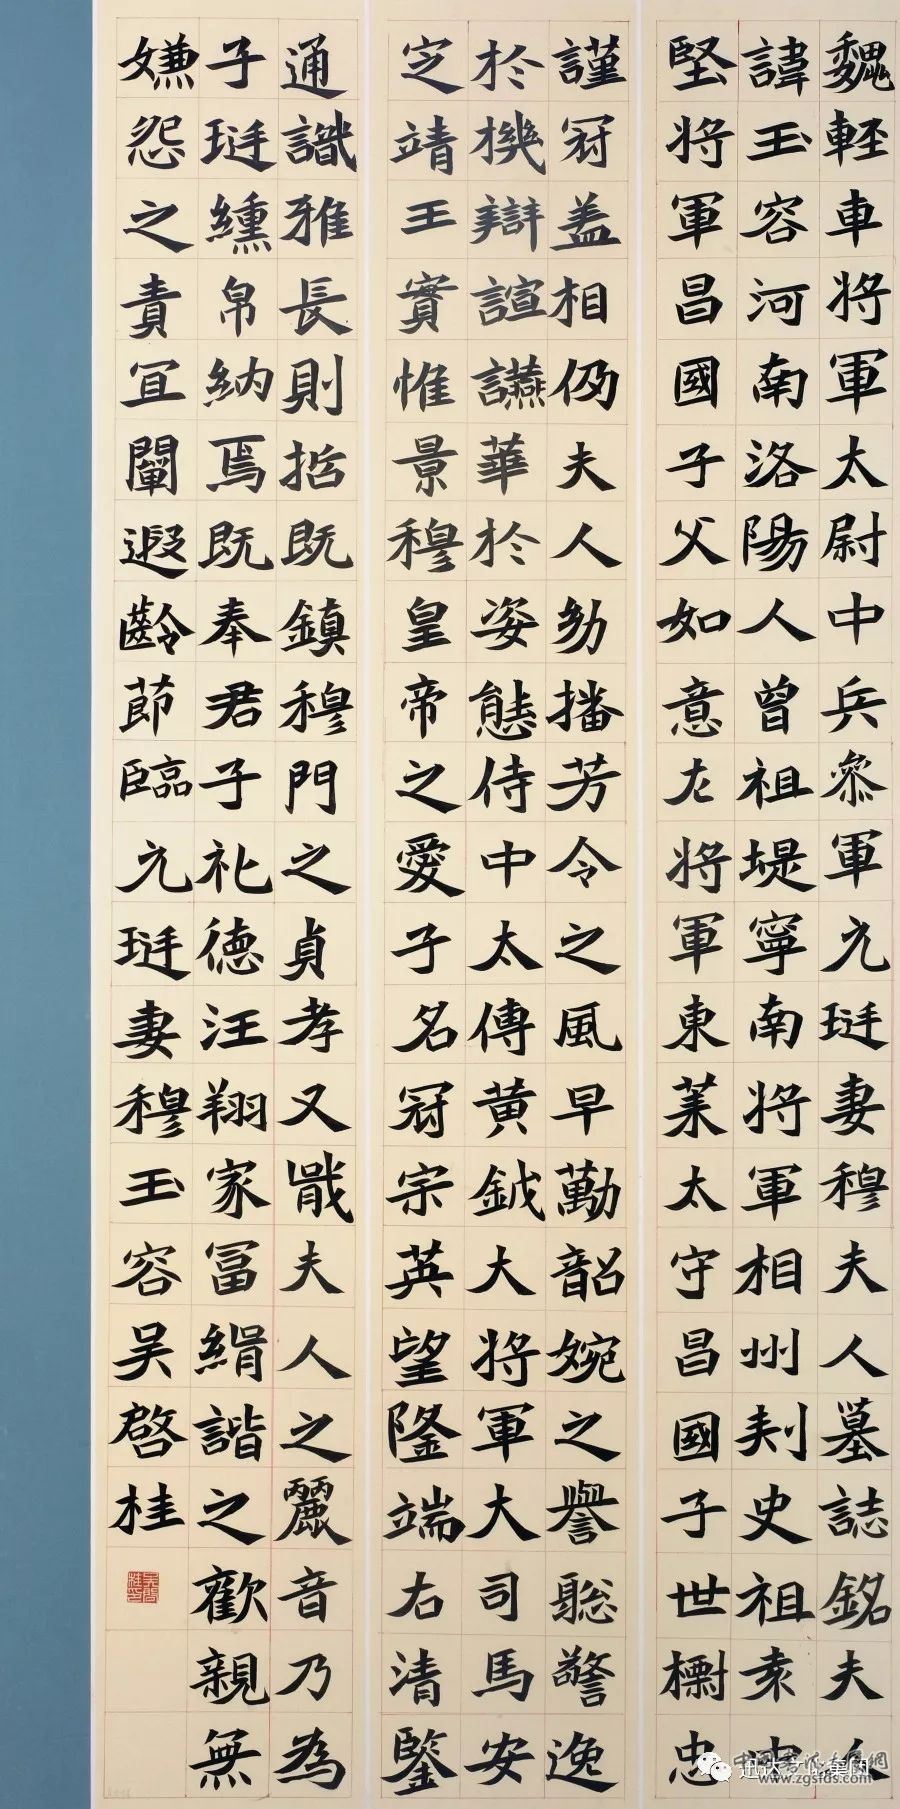 魏輕車將軍太尉中兵叅軍元珽妻穆夫人墓誌銘夫人
諱玉容河南洛陽人曾祖堤寧南將軍相州刾史祖袁中
堅將軍昌國子父如意左將軍東萊太守昌國子世櫥忠
謹冠盖相仍夫人幼播芳令之風早勵韶婉之譽聡警逸
於機辯諠讌華於姿態侍中太傅黄鉞大將軍大司馬安
定靖王實惟景穆皇帝之愛子名冠宗英望隆端右清鑒
通識雅長則哲既鎮穆門之貞孝又戢夫人之麗音乃為
子珽纁帛納焉既奉君子礼德汪翔家冨絹諧之歡親無
嫌怨之責宜闡遐齡節臨元珽妻穆玉容吴啓桂
迅达文化集团
www.zgsfds.com